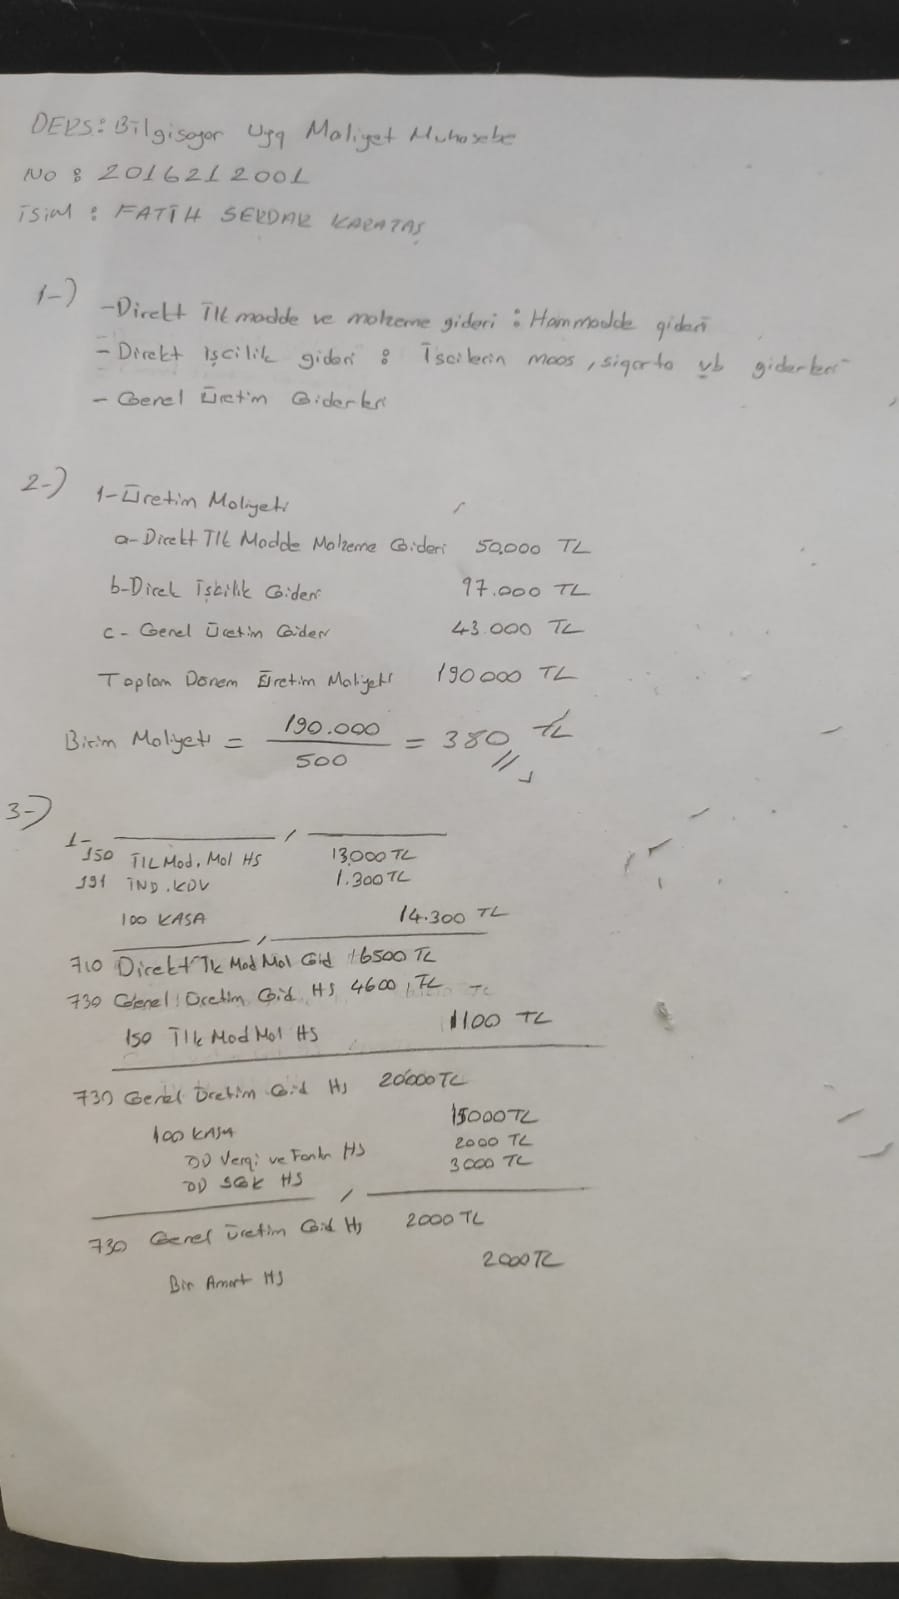 DERS: Bilgisayar Uyg Maliyet Muhasebe
NO : 2016212001
İSİM : FATİH SERDAR KARATAŞ
1-)
-Direkt İlk madde ve malzeme gideri : Hammadde gideri
- Direkt işcilik gideri : İscilerin maas, sigorta vb giderleri
- Genel Üretim Giderleri
2-) 1-Üretim Maliyeti
a- Direkt İlk Madde Malzeme Gideri 50.000 TL
b-Direk İşcilik Gideri 97.000 TL
c- Genel Üretim Gideri 43.000 TL
Toplam Dönem Üretim Maliyeti 190000 TL
Birim Maliyeti = 190.000 / 500 = 380 TL
3-)
1-
150 İlk Mad. Mal HS 13.000 TL
191 İND. KDV 1.300 TL
100 KASA 14.300 TL
710 Direkt İlk Mad Mal Gid 6500 TL
730 Genel Üretim Gid HS 4600 TL
150 İlk Mad Mal HS 11100 TL
730 Genel Üretim Gid Hs 20000 TL
100 KASA 15000 TL
ÖD Vergi ve Fonlar HS 2000 TL
ÖD SGK HS 3000 TL
730 Genel Üretim Gid Hs 2000 TL
Bir Amort HS 2000 TL